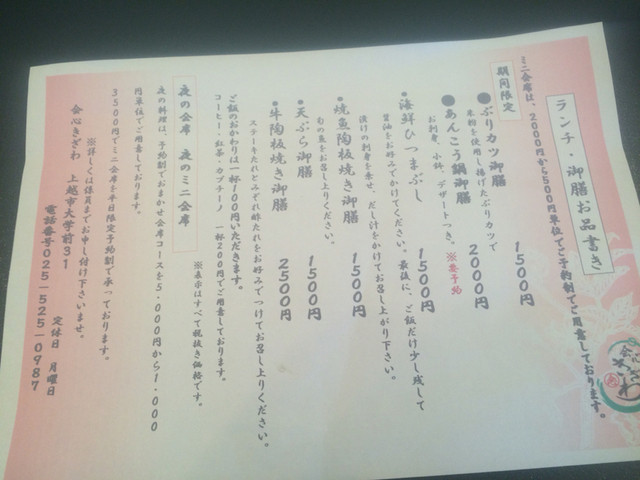 ランチ・御膳お品書き
ミニ会席は、2000円から500円単位でご予約制でご用意しております。
期間限定
●ぶりカツ御膳 1500円
米粉を使用し揚げたぶりカツで
●あんこう鍋御膳 2000円
お刺身、小鉢、デザートつき。※要予約
●海鮮ひつまぶし 1500円
醤油をお好みでかけてください。最後に、ご飯だけ少し残して
漬けの刺身を乗せ、だし汁をかけてお召し上がり下さい。
●焼魚陶板焼き御膳 1500円
旬の魚をお召し上りください。
●天ぷら御膳 1500円
●牛陶板焼き御膳 2500円
ステーキたれとみぞれ酢たれをお好みでつけてお召し上りください。
ご飯のおかわりは一杯100円いただきます。
コーヒー・紅茶・カプチーノ 一杯200円でご用意しております。
※表示はすべて税抜き価格です。
夜の会席 夜のミニ会席
夜の料理は、予約制でおまかせ会席コースを5,000円から1,000
円単位でご用意しております。
3500円でミニ会席を平日限定予約制で承っております。
※詳しくは係員までお申し付け下さいませ。
会心きざわ 上越市大学前31
電話番号025-525-0987
定休日 月曜日
会心
きざわ